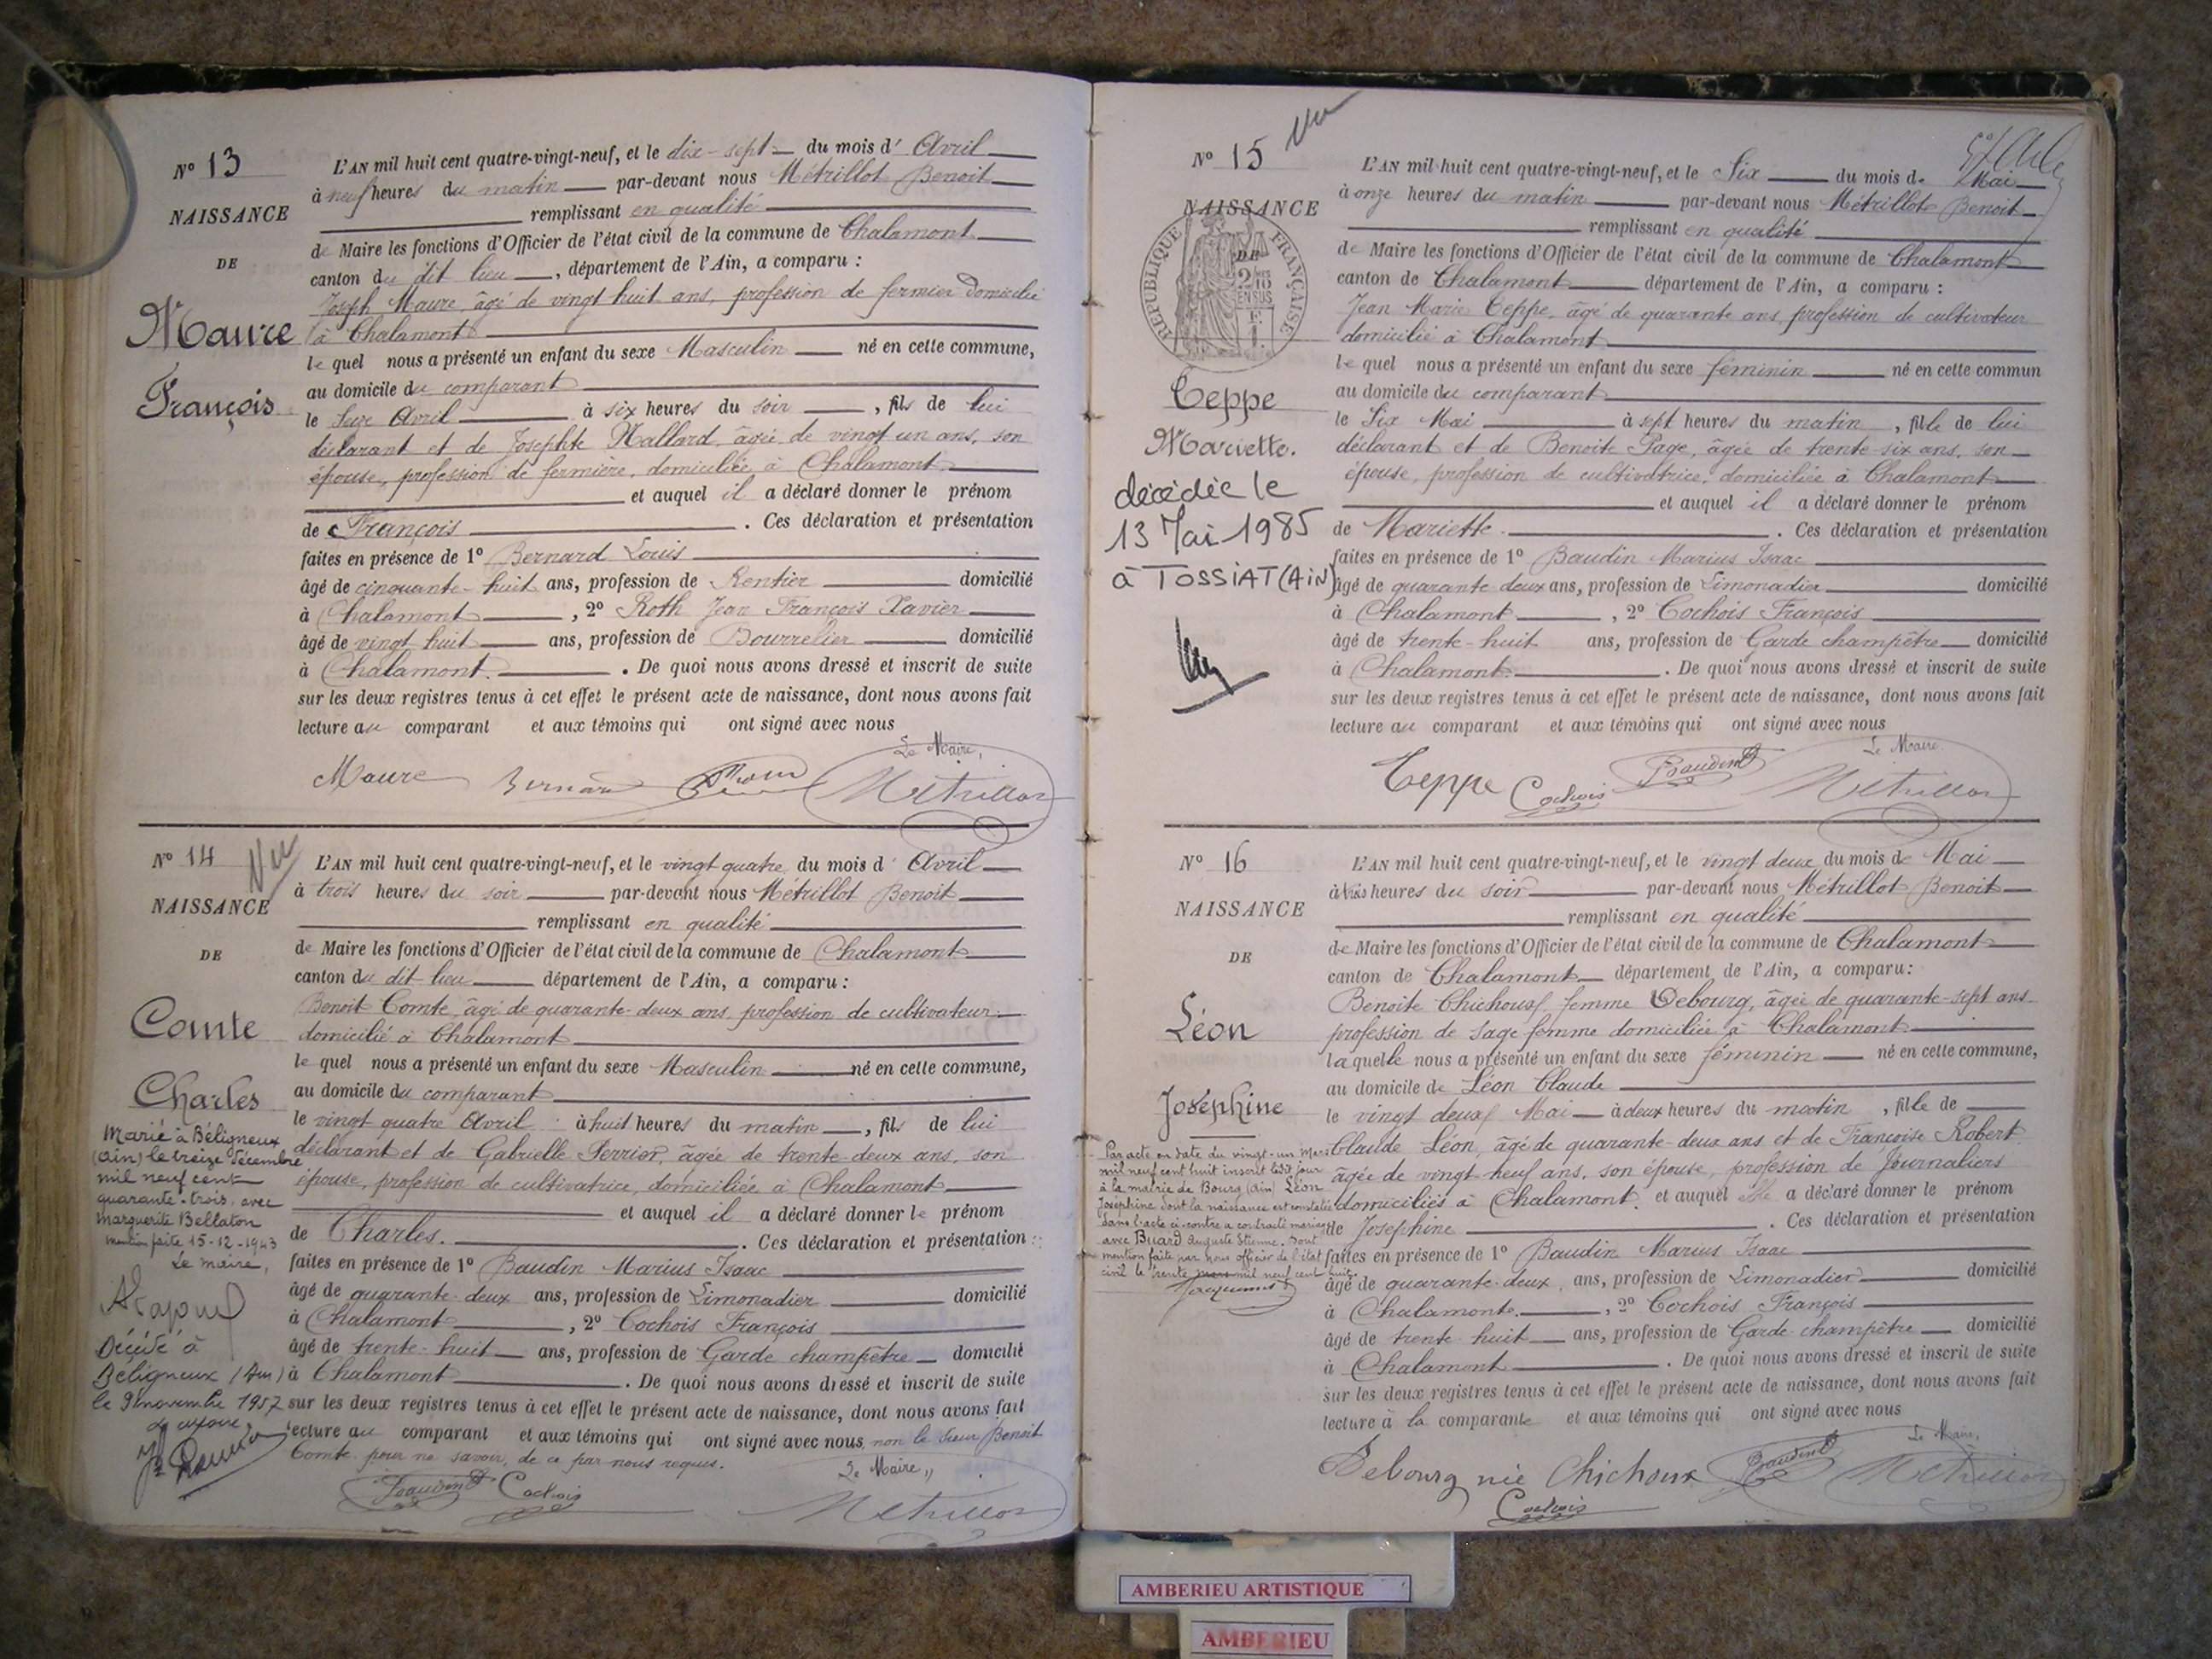 Nº 13
NAISSANCE
DE
Maure
François
L'AN mil huit cent quatre-vingt-neuf, et le dix-sept du mois d' Avril
à neuf heures du matin par-devant nous Métrillot Benoit
remplissant en qualité
de Maire les fonctions d'Officier de l'état civil de la commune de Chalamont
canton du dit lieu, département de l'Ain, a comparu :
Joseph Maure, âgé de vingt huit ans, profession de fermier domicilié
à Chalamont
le quel nous a présenté un enfant du sexe Masculin né en cette commune,
au domicile du comparant
le Seize Avril à six heures du soir, fils de lui
déclarant et de Josephte Mallard, âgée de vingt un ans, son
épouse, profession de fermière, domiciliée à Chalamont
et auquel il a déclaré donner le prénom
de François. Ces déclaration et présentation
faites en présence de 1º Bernard Louis
âgé de cinquante-huit ans, profession de Rentier domicilié
à Chalamont, 2º Roth Jean François Xavier
âgé de vingt huit ans, profession de Bourrelier domicilié
à Chalamont. De quoi nous avons dressé et inscrit de suite
sur les deux registres tenus à cet effet le présent acte de naissance, dont nous avons fait
lecture au comparant et aux témoins qui ont signé avec nous
Le Maire,
Maure Bernard Métrillot
Nº 14
Vu
NAISSANCE
DE
Comte
Charles
Marié à Béligneux
(Ain) le treize décembre
mil neuf cent
quarante-trois, avec
Marguerite Bellaton
mention faite 15-12-1943
Le maire,
Décédé à
Béligneux (Ain)
le 9 novembre 1957
L'AN mil huit cent quatre-vingt-neuf, et le vingt quatre du mois d' Avril
à trois heures du soir par-devant nous Métrillot Benoit
remplissant en qualité
de Maire les fonctions d'Officier de l'état civil de la commune de Chalamont
canton du dit lieu département de l'Ain, a comparu :
Benoit Comte, âgé de quarante-deux ans, profession de cultivateur
domicilié à Chalamont
le quel nous a présenté un enfant du sexe Masculin né en cette commune,
au domicile du comparant
le vingt quatre Avril à huit heures du matin, fils de lui
déclarant et de Gabrielle Perrier, âgée de trente-deux ans, son
épouse, profession de cultivatrice, domiciliée à Chalamont
et auquel il a déclaré donner le prénom
de Charles. Ces déclaration et présentation
faites en présence de 1º Baudin Marius Isaac
âgé de quarante-deux ans, profession de Limonadier domicilié
à Chalamont, 2º Cochois François
âgé de trente-huit ans, profession de Garde champêtre domicilié
à Chalamont. De quoi nous avons dressé et inscrit de suite
sur les deux registres tenus à cet effet le présent acte de naissance, dont nous avons fait
lecture au comparant et aux témoins qui ont signé avec nous, non le sieur Benoit
Comte pour ne savoir, de ce par nous requis.
Le Maire,,
Baudin Cochois Métrillot
Nº 15
Vu
NAISSANCE
DE
RÉPUBLIQUE FRANÇAISE
Teppe
Mariette.
décédée le
13 Mai 1985
à TOSSIAT (AiN)
L'AN mil huit cent quatre-vingt-neuf, et le Six du mois de Mai
à onze heures du matin par-devant nous Métrillot Benoit
remplissant en qualité
de Maire les fonctions d'Officier de l'état civil de la commune de Chalamont
canton de Chalamont département de l'Ain, a comparu :
Jean Marie Teppe, âgé de quarante ans, profession de cultivateur
domicilié à Chalamont
le quel nous a présenté un enfant du sexe féminin né en cette commun
au domicile du comparant
le Six Mai à sept heures du matin, fille de lui
déclarant et de Benoite Page, âgée de trente-six ans, son
épouse, profession de cultivatrice, domiciliée à Chalamont
et auquel il a déclaré donner le prénom
de Mariette. Ces déclaration et présentation
faites en présence de 1º Baudin Marius Isaac
âgé de quarante deux ans, profession de Limonadier domicilié
à Chalamont, 2º Cochois François
âgé de trente-huit ans, profession de Garde champêtre domicilié
à Chalamont. De quoi nous avons dressé et inscrit de suite
sur les deux registres tenus à cet effet le présent acte de naissance, dont nous avons fait
lecture au comparant et aux témoins qui ont signé avec nous
Le Maire.
Teppe Cochois Baudin Métrillot
Nº 16
NAISSANCE
DE
Léon
Joséphine
Par acte en date du vingt-un Mars
mil neuf cent huit inscrit ledit jour
à la mairie de Bourg (Ain) Léon
Joséphine dont la naissance est constatée
dans l'acte ci-contre a contracté mariage
avec Buard Auguste Etienne. Dont
mention faite par nous officier de l'état
civil le trente mars mil neuf cent huit.
L'AN mil huit cent quatre-vingt-neuf, et le vingt deux du mois de Mai
à trois heures du soir par-devant nous Métrillot Benoit
remplissant en qualité
de Maire les fonctions d'Officier de l'état civil de la commune de Chalamont
canton de Chalamont département de l'Ain, a comparu :
Benoite Chichoux femme Debourg, âgée de quarante-sept ans
profession de sage femme domiciliée à Chalamont
la quelle nous a présenté un enfant du sexe féminin né en cette commune,
au domicile de Léon Claude
le vingt deux Mai à deux heures du matin, fille de
Claude Léon, âgé de quarante-deux ans et de Françoise Robert
âgée de vingt neuf ans, son épouse, profession de Journaliers
domiciliés à Chalamont, et auquel elle a déclaré donner le prénom
de Josephine. Ces déclaration et présentation
faites en présence de 1º Baudin Marius Isaac
âgé de quarante-deux ans, profession de Limonadier domicilié
à Chalamont, 2º Cochois François
âgé de trente huit ans, profession de Garde champêtre domicilié
à Chalamont. De quoi nous avons dressé et inscrit de suite
sur les deux registres tenus à cet effet le présent acte de naissance, dont nous avons fait
lecture à la comparante et aux témoins qui ont signé avec nous
Le Maire,
Debourg née Chichoux Baudin Métrillot
Cochois
AMBERIEU ARTISTIQUE
AMBERIEU